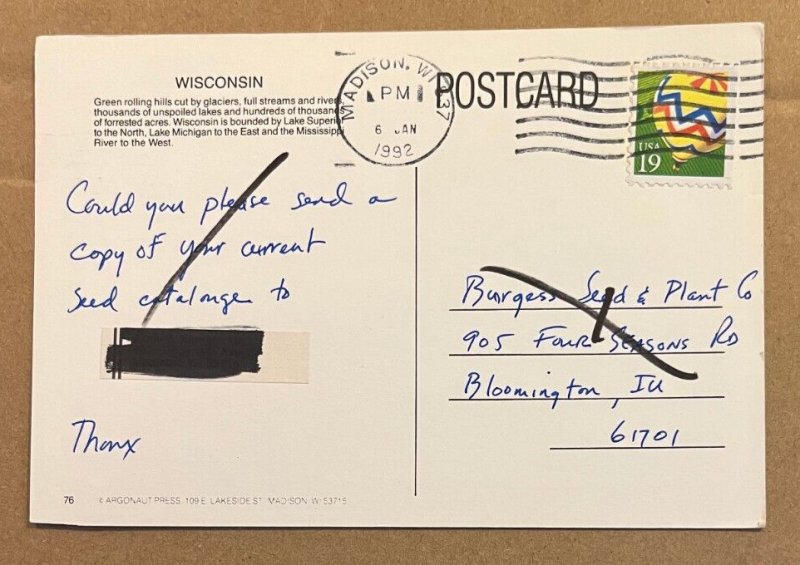 WISCONSIN
Green rolling hills cut by glaciers, full streams and rivers
thousands of unspoiled lakes and hundreds of thousands
of forrested acres. Wisconsin is bounded by Lake Superior
to the North, Lake Michigan to the East and the Mississippi
River to the West.
MADISON, WI 537
PM
6 JAN
1992
POSTCARD
USA
19
Could you please send a
copy of your current
seed catalonge to
Thanx
Burgess Seed & Plant Co
905 Four Seasons Rd
Bloomington, Ill
61701
76 © ARGONAUT PRESS, 109 E. LAKESIDE ST. MADISON, WI 53715